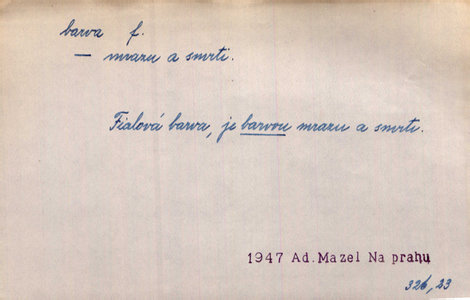 barva f.
— mrazu a smrti.
Fialová barva, je barvou mrazu a smrti.
1947 Ad. Mazel Na prahu
326, 23